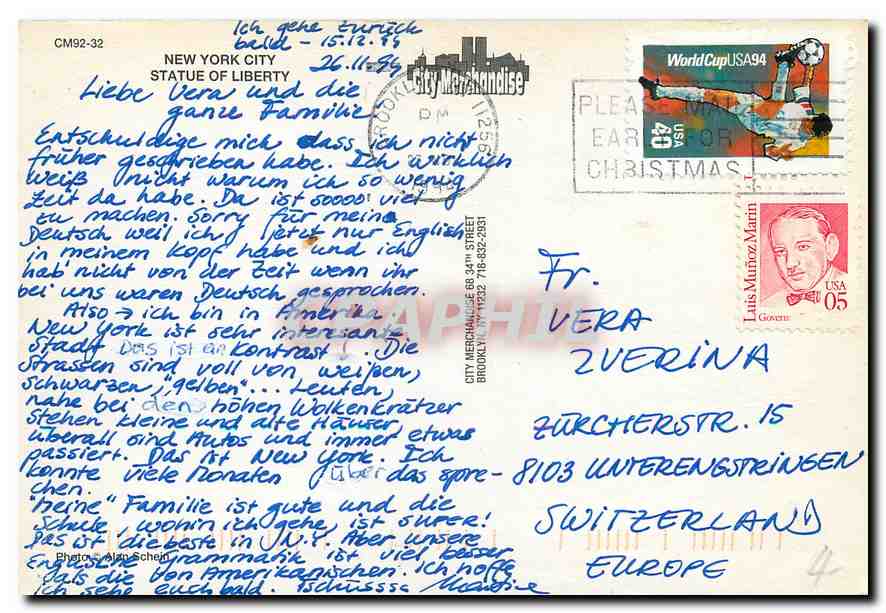 Ich gehe zurück
bald - 15.12.94
CM92-32
NEW YORK CITY
STATUE OF LIBERTY
26.11.94
City Merchandise
Liebe Vera und die
ganze Familie
Entschuldige mich dass ich nicht
früher geschrieben habe. Ich wirklich
weiß nicht warum ich so wenig
Zeit da habe. Da ist sooooo viel
zu machen. Sorry für meine
Deutsch weil ich jetzt nur English
in meinem Kopf habe und ich
hab nicht von der Zeit wenn ihr
bei uns waren Deutsch gesprochen.
Also → ich bin in Amerika.
New York ist sehr interesante
Stadt Das ist ein Kontrast! Die
Strassen sind voll von weißen,
schwarzen, "gelben"... Leuten,
nahe bei den höhen Wolkenkrätzer
stehen kleine und alte Häuser,
überall sind Autos und immer etwas
passiert. Das ist New York. Ich
konnte viele Monaten über das spre-
chen.
"Meine" Familie ist gute und die
Schule, wohin ich gehe, ist SUPER!
Das ist die beste in N.Y. Aber unsere
Englische Grammatik ist viel besser
als die von Amerikanischen. Ich hoffe
ich sehe euch bald. Tschüsssa
Photo: Alan Schein
CITY MERCHANDISE 68 34TH STREET
BROOKLYN, NY 11232 718-832-2931
BROOKLYN
11256
PLEASE MAIL
EARLY FOR
CHRISTMAS
World Cup USA94
40
USA
Luis Muñoz Marin
Governor
USA
05
Fr.
VERA
ZVERINA
ZÜRCHERSTR. 15
8103 UNTERENGSTRINGEN
SWITZERLAND
EUROPE
4